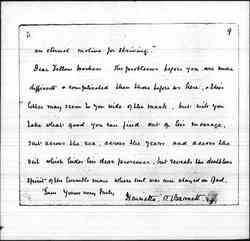 9
an eternal motive for striving."
Dear Fellow Workers The problems before you are more
difficult & complicated than those before us here, & this
letter may seem to you wide of the mark, but will you
take what good you can find out of his message,
sent across the sea, across the years and across the
veil which hides his dear presence, but reveals the deathless
spirit of the humble man whose soul was ever stayed on God.
I am Yours very truly,
Henrietta O. Barnett